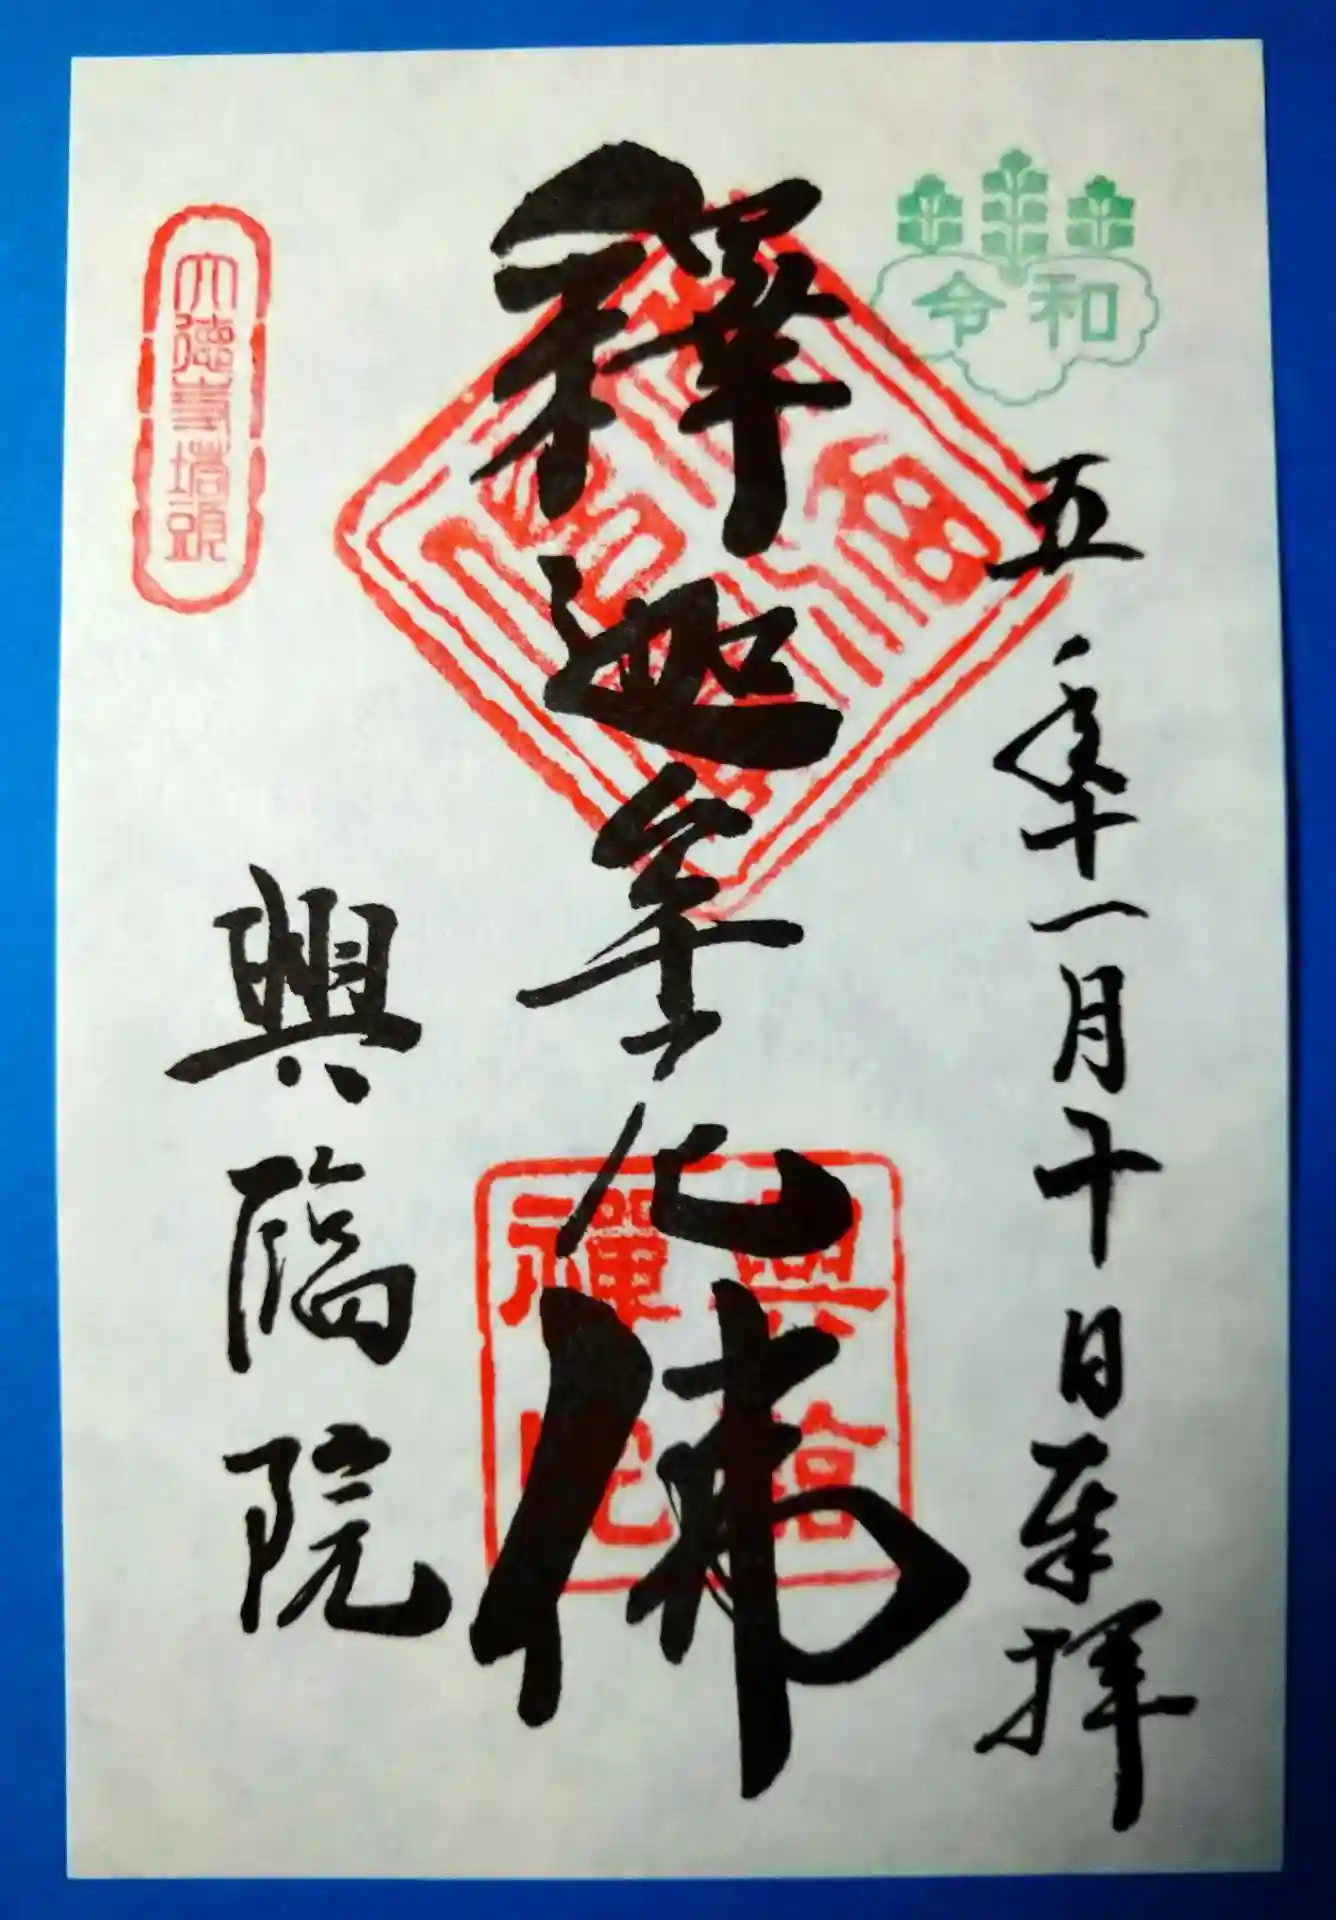 令和
五年十一月十日奉拝
釋迦牟尼佛
興臨院
大徳寺塔頭